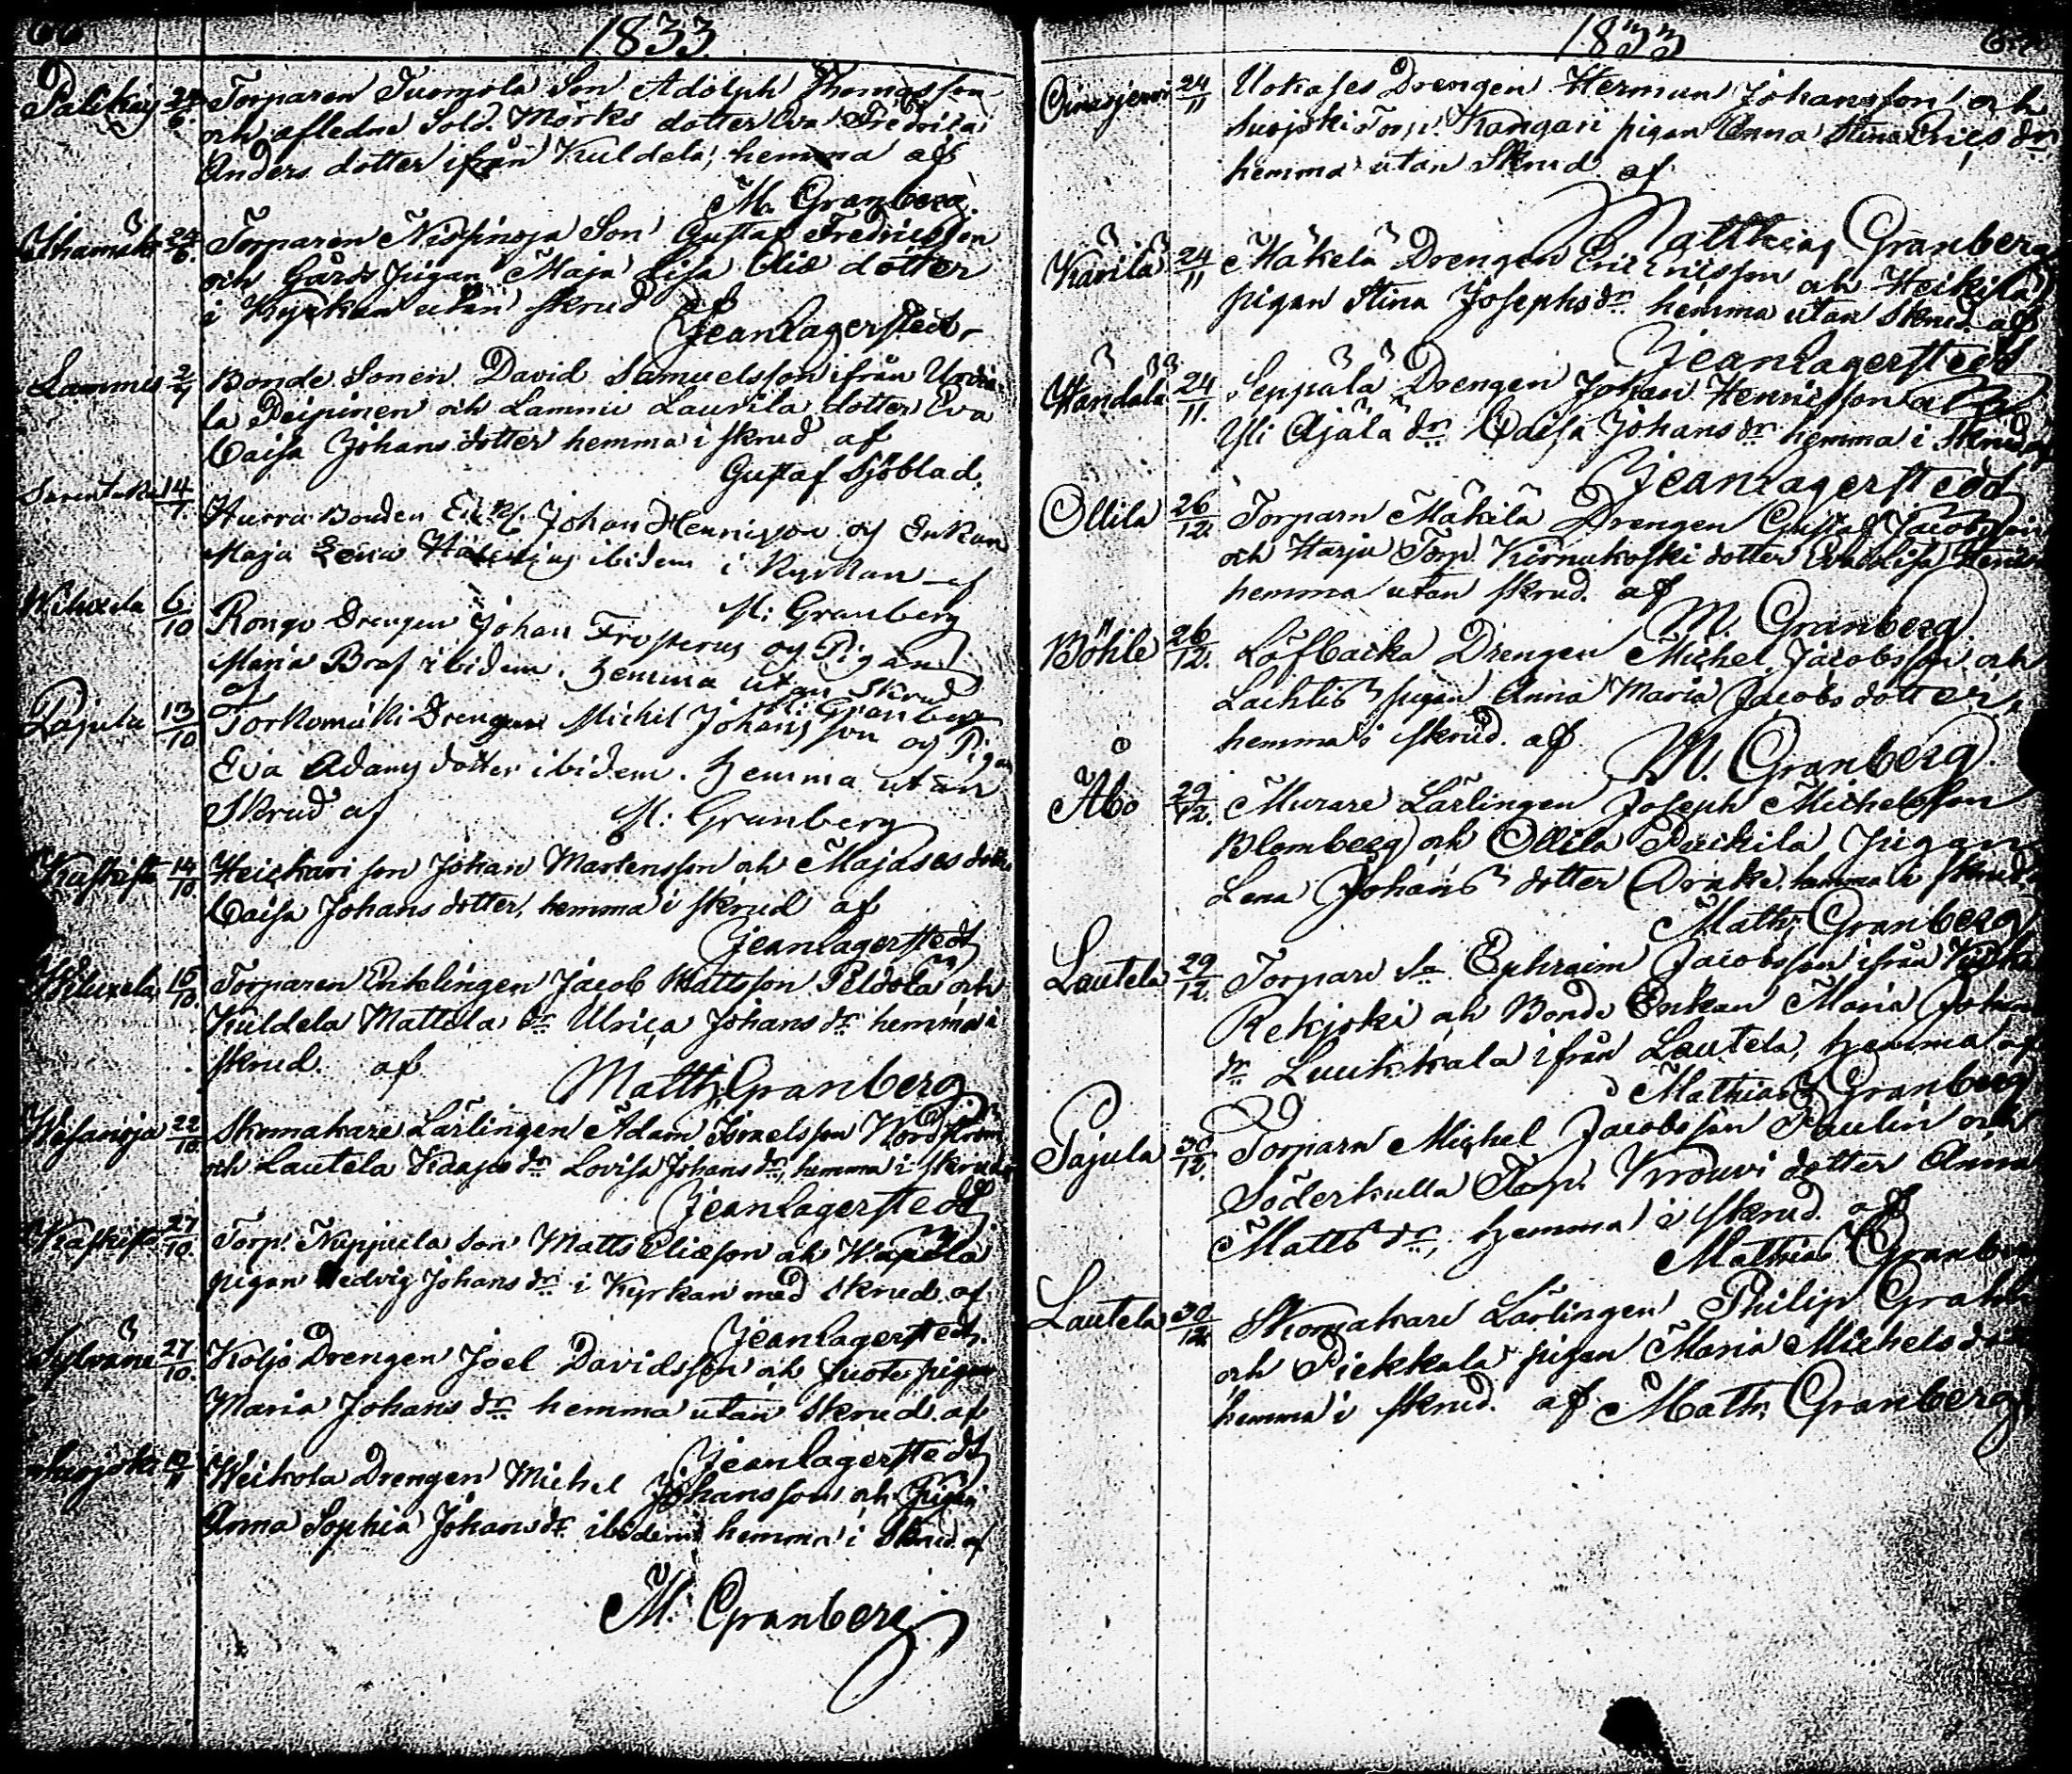 66
1833.
Palikais 24/6. Torparen Tuomola Son Adolph Thomasson
och afledne Sold. Mörks dotter Eva Fredrica
Anders dotter ifrån Kuldela, hemma af
M. Granberg.
Ihamäki 24/6. Torparen Nissinoja Son Gustaf Fredricsson
och Gårds pigan Maja Lisa Eliæ dotter
i Kyrkan utan skrud af
Jean Lagerstedt
Lammis 2/7 Bonde Sonen David Samuelsson ifrån
la Peipinen och Lammis Laurila dotter Eva
Caisa Johans dotter hemma i skrud af
Gustaf Sjöblad.
14/7. Hurra Bonden Enkl. Johan Henricsson og Enkan
Maja Lena ibidem i Kyrkan af
M: Granberg
Wiluxela 6/10 Rongo Drengen Johan Frosterus og Pigan
Maria Bras ibidem. hemma utan Skrud
af M: Granberg
Pajula 13/10 Torkomäki Drengen Michil Johansson og Pigan
Eva Adams dotter ibidem. hemma utan
Skrud af M: Granberg
Kaskisto 14/10. Heickari son Johan Mårtensson och Majases dotter
Caisa Johans dotter, hemma i skrud af
Jean Lagerstedt
Wiluxela 15/10. Torparen Enklingen Jacob Mattsson Peldola och
Kuldela Mattila dr Ulrica Johans dr hemma i
skrud. af
Matth. Granberg
Wesanoja 22/10. Skomakare Lärlingen Adam Israelsson Nordström
och Lautela dr Lovisa Johans dr, hemma i skrud
Jean Lagerstedt
Kaskisto 27/10. Torp. Nuppula Son Matts Eliæson och
pigan Hedvig Johans dr i Kyrkan med skrud af
Jean Lagerstedt.
Sylvänä 27/10. Koljo Drengen Joel Davidsson och pigan
Maria Johans dr hemma utan skrud. af
Jean Lagerstedt
11 Weikola Drengen Michel Johansson och Pigan
Anna Sophia Johans dr ibidem hemma i Skrud af
M. Granberg
1833
Oinasjerwi 24/11 Uokases Drengen Herman Johansson och
Suojoki Torp. Kangari pigan Anna Stina Erics dr
hemma utan Skrud af
Matthias Granberg
Kärilä 24/11 Mäkelä Drengen Eric Ericsson och Heikilä
pigan Stina Josephs dr hemma utan Skrud af
Jean Lagerstedt
Händälä 24/11. Seppälä Drengen Johan Henricsson och
Yli Äjälä dr Caisa Johans dr hemma i Skrud af
Jean Lagerstedt
Ollila 26/12. Torparn Mäkilä Drengen Gustaf Jacobsson
och Harju Torp. Kirnukoski dotter Eva Lisa Henrics
hemma utan skrud. af
M. Granberg
Böhle 26/12. Löfbacka Drengen Michel Jacobsson och
Lachtis pigan Anna Maria Jacobs dotter,
hemma i skrud. af
M. Granberg.
Åbo 29/12. Murare Lärlingen Joseph Michelsson
Blomberg och Ollila Parkila pigan
Lena Johans dotter Drake, hemma i skrud.
Math: Granberg
Lautela 29/12. Torpare Sn Ephraim Jacobsson ifrån
Rekijoki och Bonde Enkan Maria Johans
dr Luukkala ifrån Lautela, hemma af
Mathias Granberg
Pajula 30/12. Torparn Michel Jacobsson Paulin och
Söderkulla Torp. Krouvi dotter Anna
Matts dr, hemma i skrud. af
Mathias Granberg
Lautela 30/12. Skomakare Lärlingen Philip Grahn
och Piekkala pigan Maria Michels dotter
hemma i skrud. af Math: Granberg